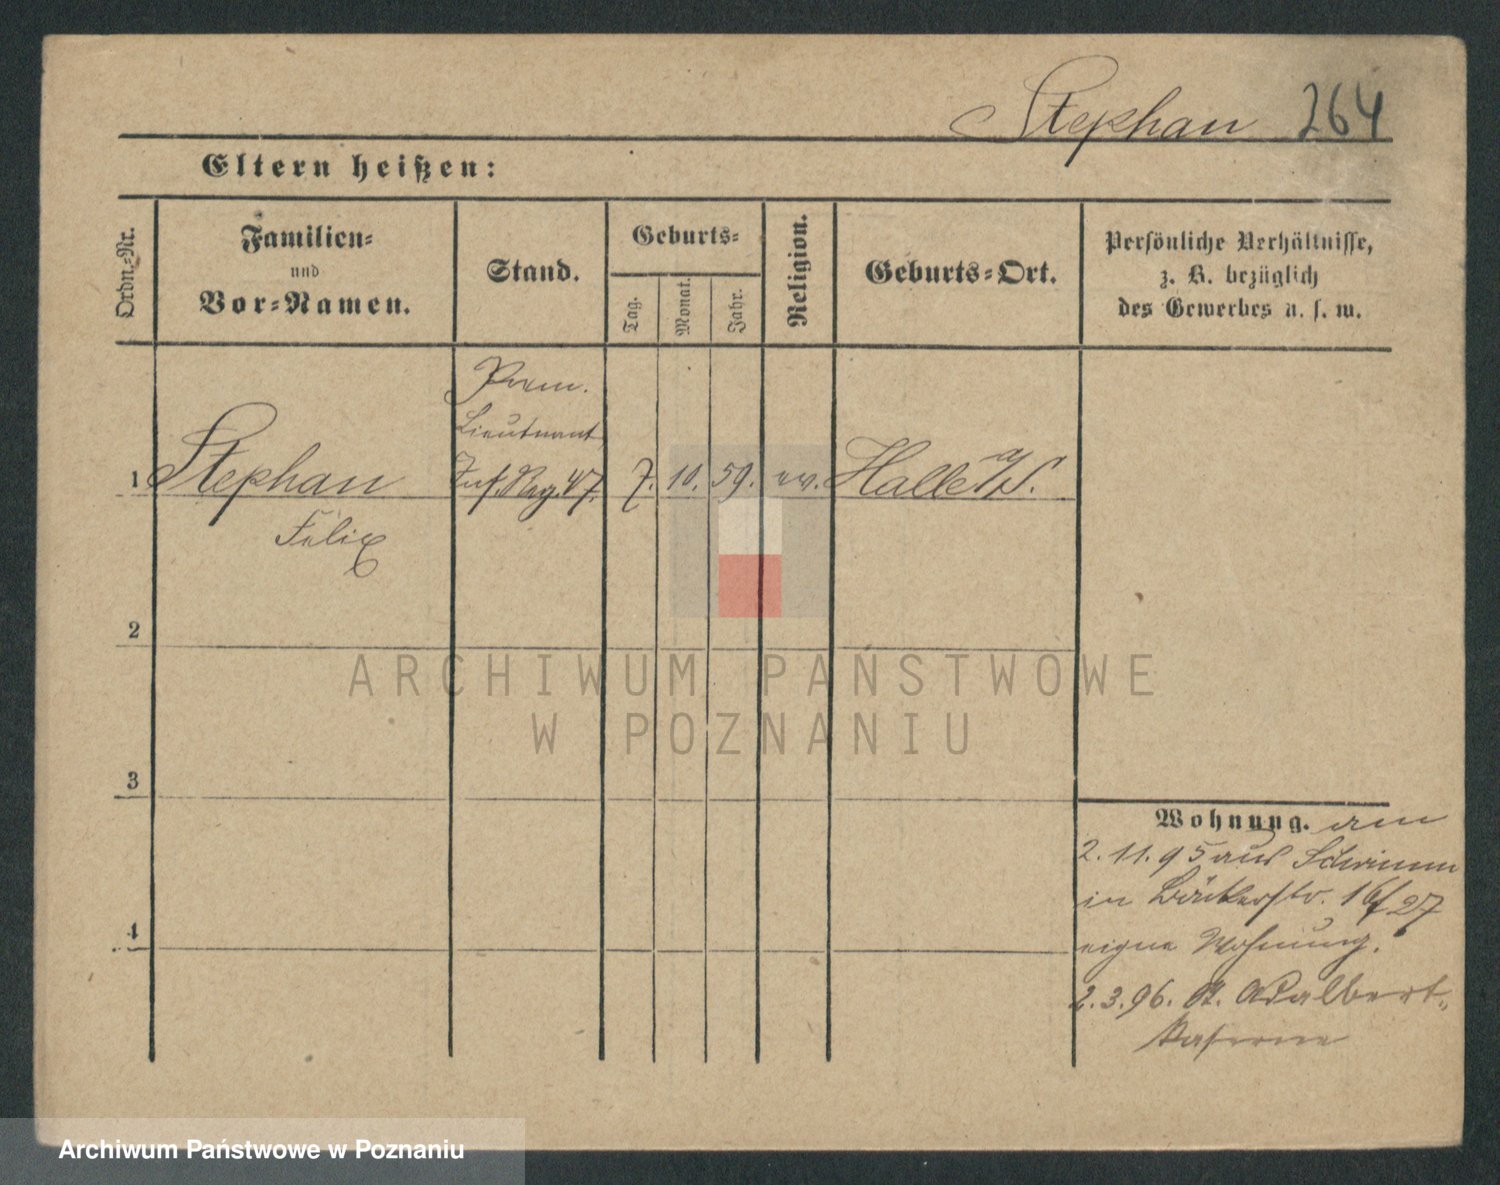 Stephan 264
Eltern heißen:
Ordn.-Nr.
Familien-
und
Vor-Namen.
Stand.
Geburts-
Tag.
Monat.
Jahr.
Religion.
Geburts-Ort.
Persönliche Verhältnisse,
z. B. bezüglich
des Gewerbes u. s. w.
Prem.
Lieutnant
1 Stephan Inf. Reg. 47. 7. 10. 59. ev. Halle a/S.
Felix
2
3
4
Wohnung. am
2. 11. 95 aus Schrimm
in Bäckerstr. 16/27
eigne Wohnung.
2. 3. 96. St. Adalbert-
Kaserne
ARCHIWUM PAŃSTWOWE
W POZNANIU
Archiwum Państwowe w Poznaniu